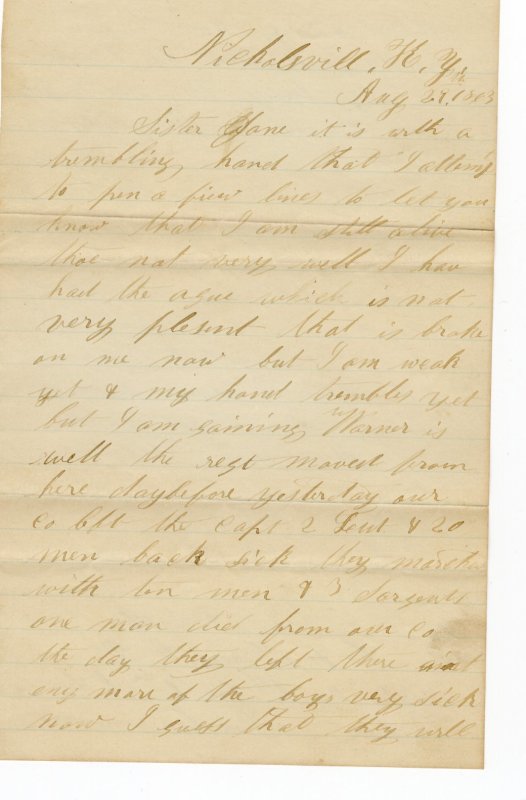 Nicholsvill, K, Y,
Aug 27, 1863
Sister Jane it is with a
trembling hand that I attempt
to pen a fiew lines to let you
know that I am still alive
thoe not very well I hav
had the ague which is not
very plesent that is broke
on me now but I am weak
yet & my hand trembles yet
but I am gaining Warner is
well the regt moved from
here day before yesterday our
Co left the Capt 2 Leut & 20
men back sick they marched
with ten men & 3 Sargents
one man died from our Co
the day they left there aint
eny more of the boys very sick
now I guess that they will